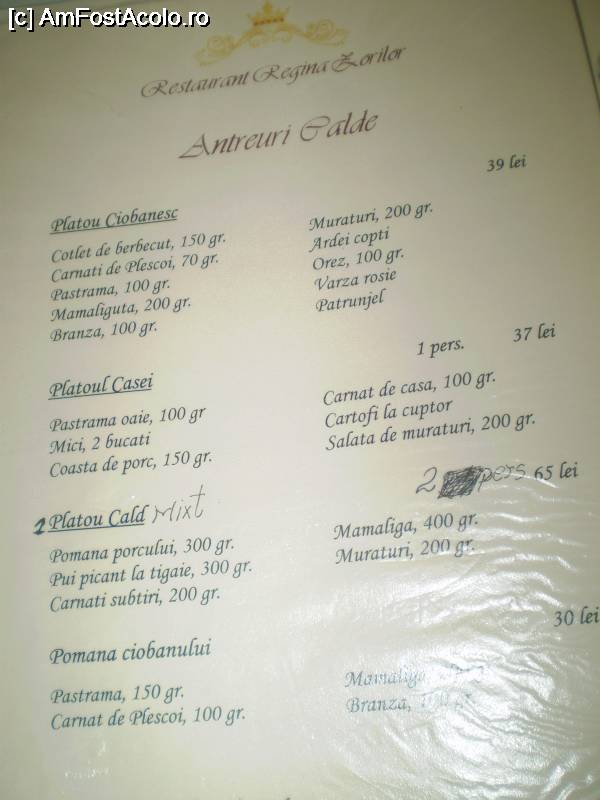 [c] AmFostAcolo.ro
Restaurant Regina Zorilor
Antreuri Calde
39 lei
Platou Ciobanesc
Cotlet de berbecut, 150 gr.
Carnati de Plescoi, 70 gr.
Pastrama, 100 gr.
Mamaliguta, 200 gr.
Branza, 100 gr.
Muraturi, 200 gr.
Ardei copti
Orez, 100 gr.
Varza rosie
Patrunjel
1 pers. 37 lei
Platoul Casei
Pastrama oaie, 100 gr
Mici, 2 bucati
Coasta de porc, 150 gr.
Carnat de casa, 100 gr.
Cartofi la cuptor
Salata de muraturi, 200 gr.
2 pers 65 lei
2 Platou Cald Mixt
Pomana porcului, 300 gr.
Pui picant la tigaie, 300 gr.
Carnati subtiri, 200 gr.
Mamaliga, 400 gr.
Muraturi, 200 gr.
30 lei
Pomana ciobanului
Pastrama, 150 gr.
Carnat de Plescoi, 100 gr.
Mamaliga
Branza, 100 gr.